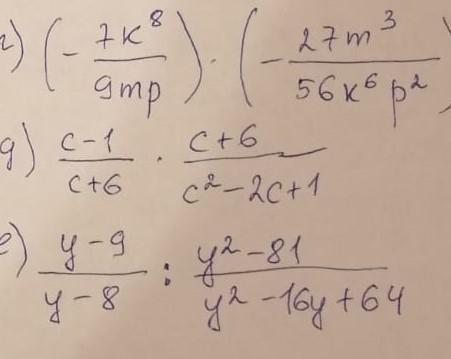 г) (-7k⁸/9mp) · (-27m³/56k⁶p²)
д) c-1/c+6 · c+6/c²-2c+1
е) y-9/y-8 : y²-81/y²-16y+64